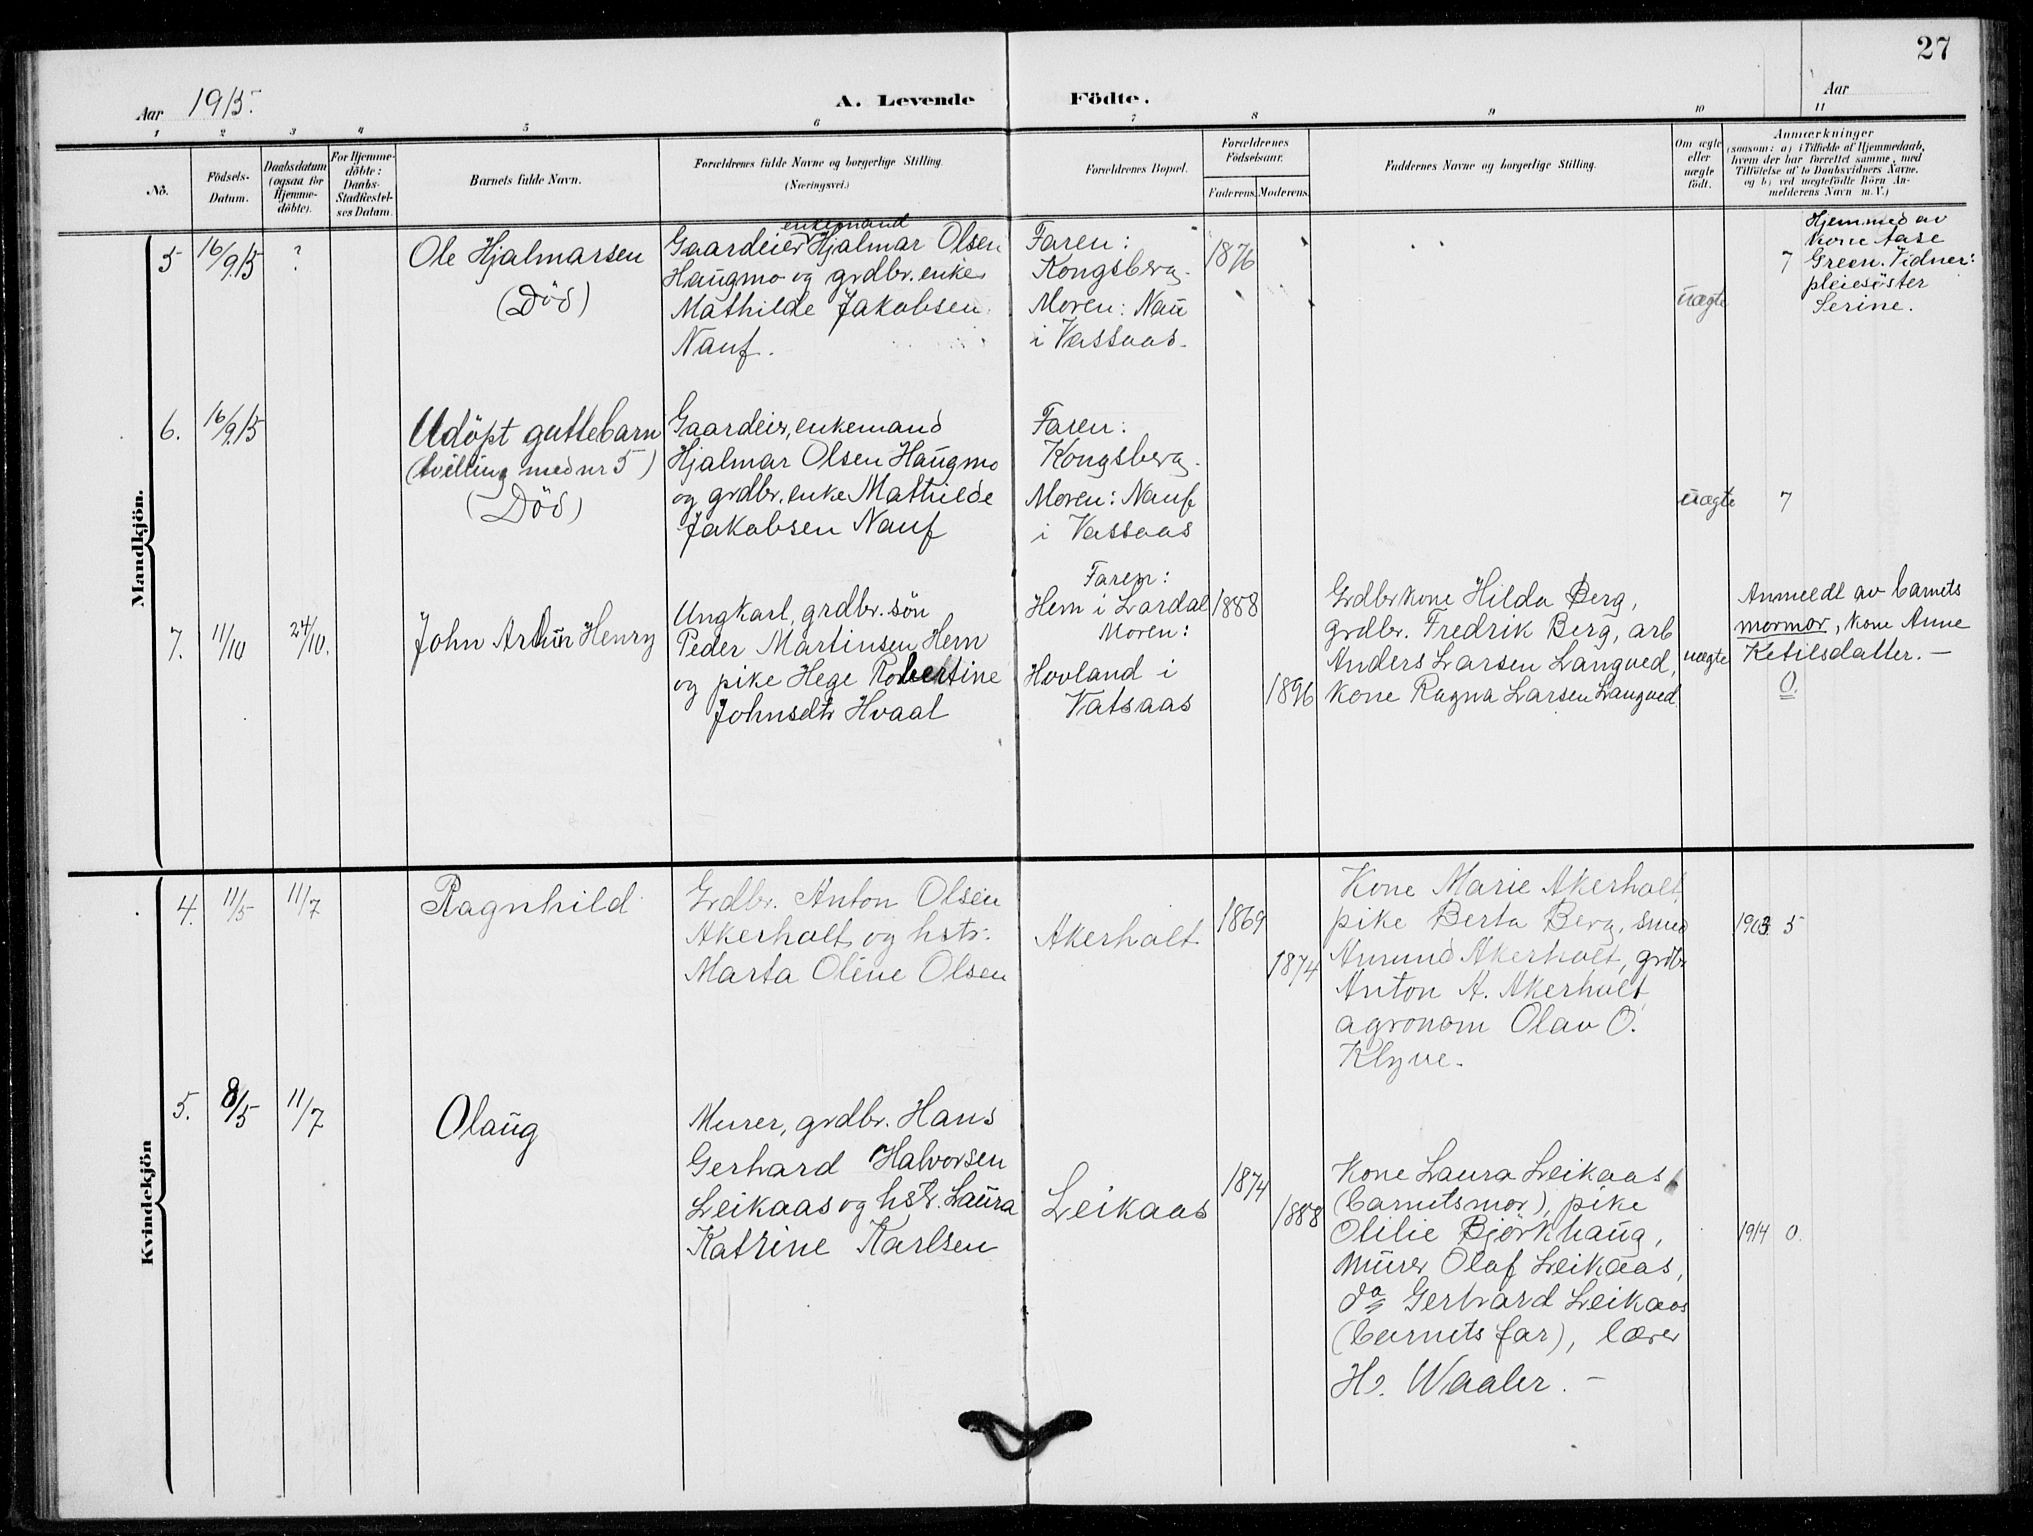 27
Aar 1915.
A. Levende Födte.
Aar
1 2 3 4 5 6 7 8 9 10 11
No.
Födsels-
Datum.
Daabsdatum
(ogsaa for
Hjemme-
döbte).
For Hjemme-
döbte:
Daabs-
Stadfæstel-
ses Datum.
Barnets fulde Navn.
Forældrenes fulde Navne og borgerlige Stilling.
(Næringsvei.)
Forældrenes Bopæl.
Forældrenes
Födselsaar.
Faderens. Moderens.
Faddernes Navne og borgerlige Stilling.
Om ægte
eller
uægte
födt.
Anmærkninger
(saasom: a) i Tilfælde af Hjemmedaab,
hvem der har forrettet samme, med
Tilföielse af to Daabsvidners Navne.
og b) ved uægtefödte Börn An-
melderens Navn m. V.)
Mandkjön.
5
16/9.15
?
Ole Hjalmarsen
(Död)
enkemand
Gaardeier Hjalmar Olsen
Haugmo og grdbr. enke
Mathilde Jakobsen
Nauf.
Faren:
Kongsberg.
Moren: Nau
i Vassaas.
1876
uægte
7
Hjemmed av
kone Aase
Green. Vidner:
pleiesöster
Serine.
6.
16/9.15
Udöpt guttebarn
(tvilling med nr 5)
(Död)
Gaardeier, enkemand
Hjalmar Olsen Haugmo
og grdbr. enke Mathilde
Jakobsen Nauf
Faren:
Kongsberg.
Moren: Nauf
i Vassaas
uægte
7
7.
11/10
24/10.
John Artur Henry
Ungkarl, grdbr. sön
Peder Martinsen Hem
og pike Hege Robertine
Johnsdtr Hvaal
Faren:
Hem i Lardal
Moren:
Hovland i
Vatsaas
1888
1896
Grdbrkone Hilda Berg,
grdbr. Fredrik Berg, arb
Anders Larsen Langved,
kone Ragna Larsen Langved
uægte
Anmeldt av barnets
mormor, kone Anne
Ketilsdatter. —
0.
Kvindekjön
4.
11/5
11/7
Ragnhild
Grdbr. Anton Olsen
Akerholt og hstr.
Marta Oline Olsen
Akerholt
1869
1874
Kone Marie Akerholt,
pike Berta Berg, smed
Amund Akerholt, grdbr
Anton A. Akerholt,
agronom Olav O.
Klyve.
1903 5
5.
8/5
11/7
Olaug
Murer, grdbr. Hans
Gerhard Halvorsen
Leikaas og hstr. Laura
Katrine Karlsen
Leikaas
1874
1888
Kone Laura Leikaas
(barnetsmor), pike
Olilie Björkhaug,
murer Olaf Leikaas,
do Gerhard Leikaas
(barnets far), lærer
H. Waaler. —
1914 0.